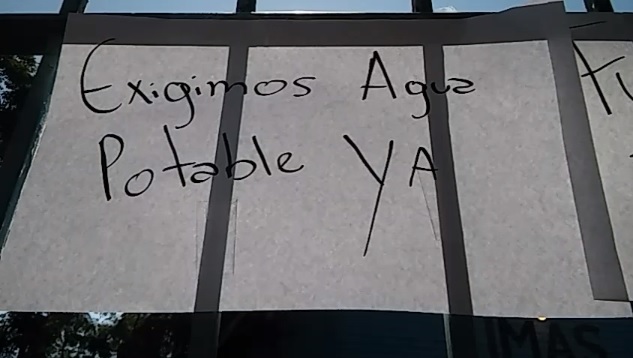 Exigimos Agua
Potable YA
IMAS